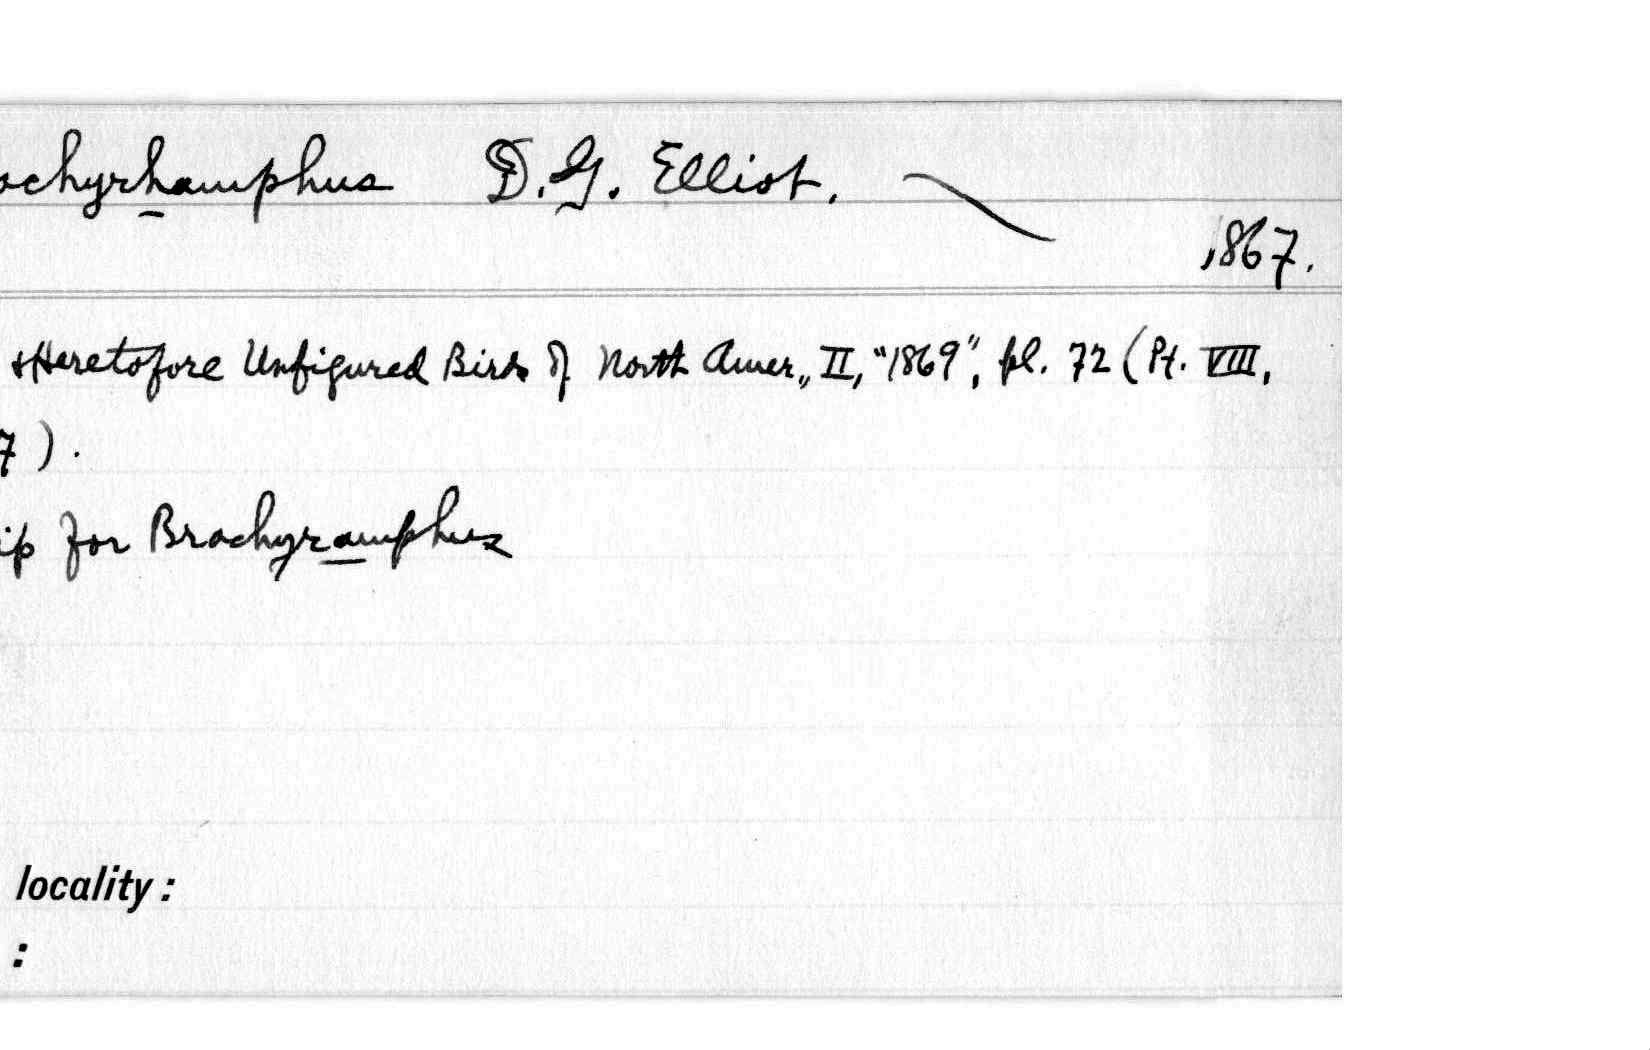 achyrhamphus D.G. Elliot.
1867.
+Heretofore Unfigured Birds of North Amer., II, "1869", pl. 72 (Pt. VIII,
7).
ip for Brachyramphus
locality:
: